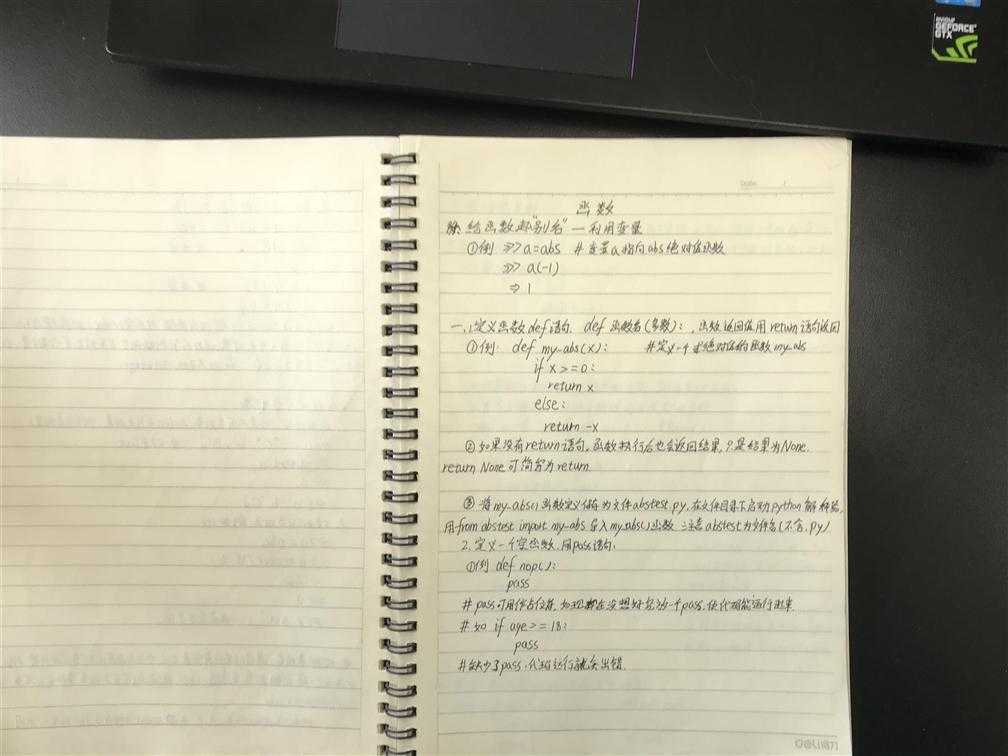 NVIDIA
GEFORCE
GTX
Date
函数
给函数起"别名"—利用变量
①例 >>> a=abs #变量a指向abs绝对值函数
>>> a(-1)
⇒ 1
一、1定义函数def语句. def 函数名(参数): ,函数返回值用return语句返回
①例: def my_abs(x): #定义一个求绝对值的函数my_abs
if x>=0:
return x
else:
return -x
②如果没有return语句,函数执行后也会返回结果,只是结果为None.
return None可简写为return
③将my_abs()函数定义储为文件abstest.py,在文件目录下启动python解释器,
用from abstest import my_abs导入my_abs()函数 注意abstest为文件名(不含.py)
2.定义一个空函数,用pass语句,
①例 def nop():
pass
#pass可用作占位符,如现在没想好怎 一个pass,使代码能运行起来
#如 if age>=18:
pass
#缺少了pass,代码运行就会出错.